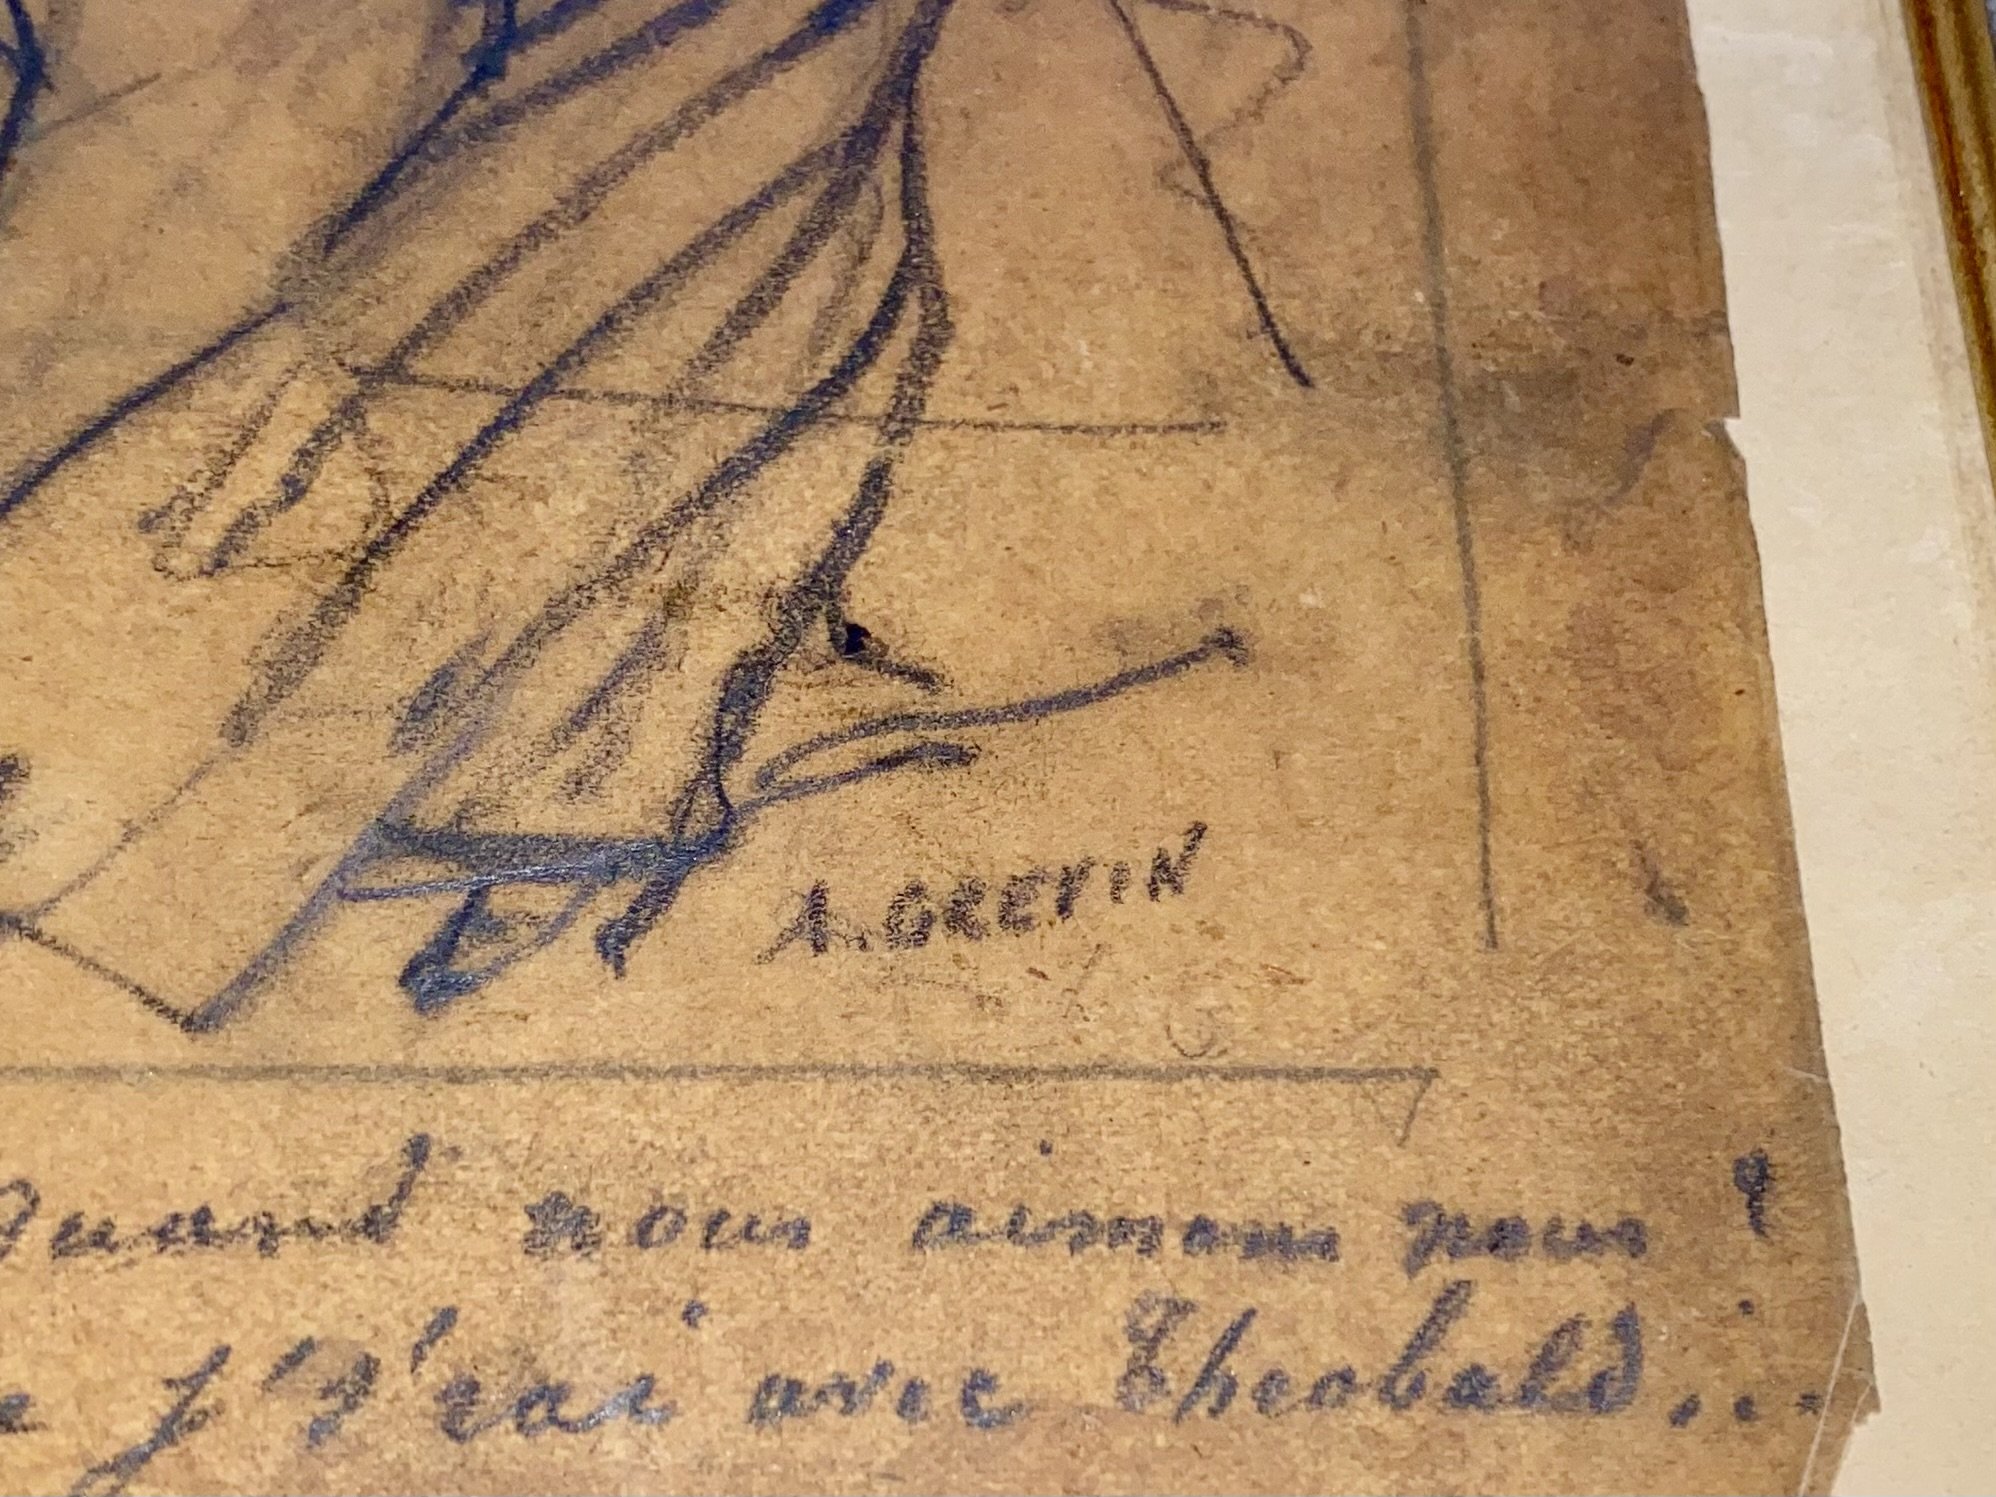 A. GREVIN
Quand nous aimons nous !
j' y' rai avec Theobald...